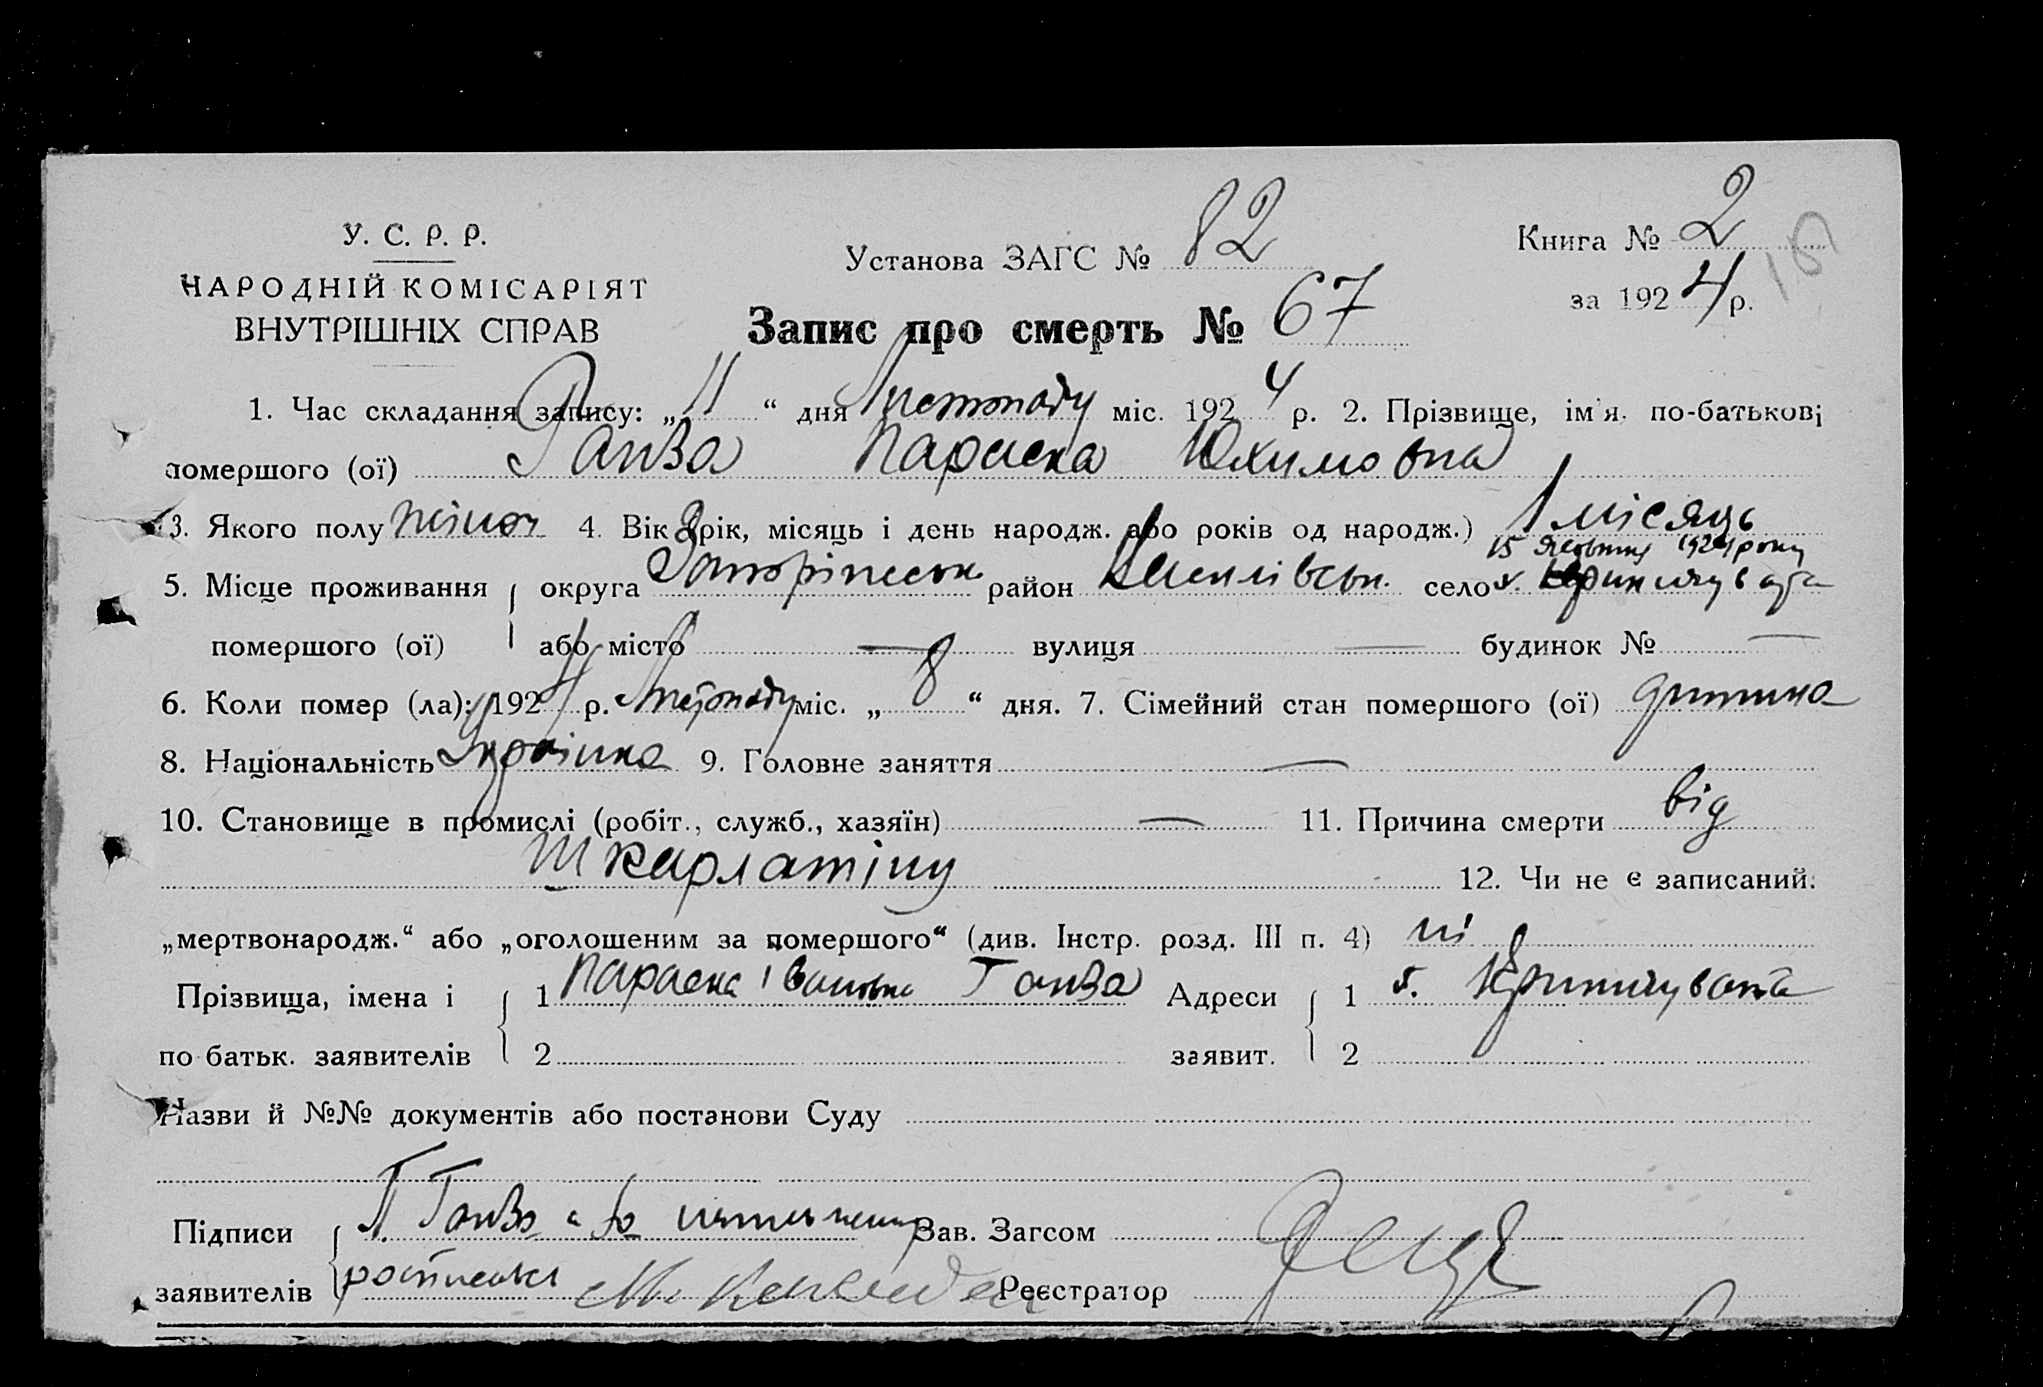 У. С. Р. Р.
НАРОДНІЙ КОМІСАРІЯТ
ВНУТРІШНІХ СПРАВ
Установа ЗАГС № 82
Книга № 2
за 1924 р.
Запис про смерть № 67
1. Час складання запису: „11“ дня Листопаду міс. 1924 р. 2. Прізвище, ім'я. по-батькові
помершого (ої) Ганза Параска Юхимовна
3. Якого полу жіноч 4. Вік (рік, місяць і день народж. або років од народж.) 1 місяць
15 Жовтня 1924 року
5. Місце проживання округа Запоріжськ район село х.
помершого (ої) або місто — вулиця — будинок № —
6. Коли помер (ла): 1924 р. Листопаду міс. „8“ дня. 7. Сімейний стан помершого (ої) дитина
8. Національність Українка 9. Головне заняття —
10. Становище в промислі (робіт., служб., хазяїн) — 11. Причина смерти від
шкарлатіну 12. Чи не є записаний:
„мертвонародж.“ або „оголошеним за помершого“ (див. Інстр. розд. III п. 4) ні
Прізвища, імена і 1 Параска Івановна Ганза Адреси 1 х. Криничувата
по батьк. заявителів 2 заявит. 2
Назви й №№ документів або постанови Суду
Підписи П Ганза а за Зав. Загсом
заявителів Реєстратор